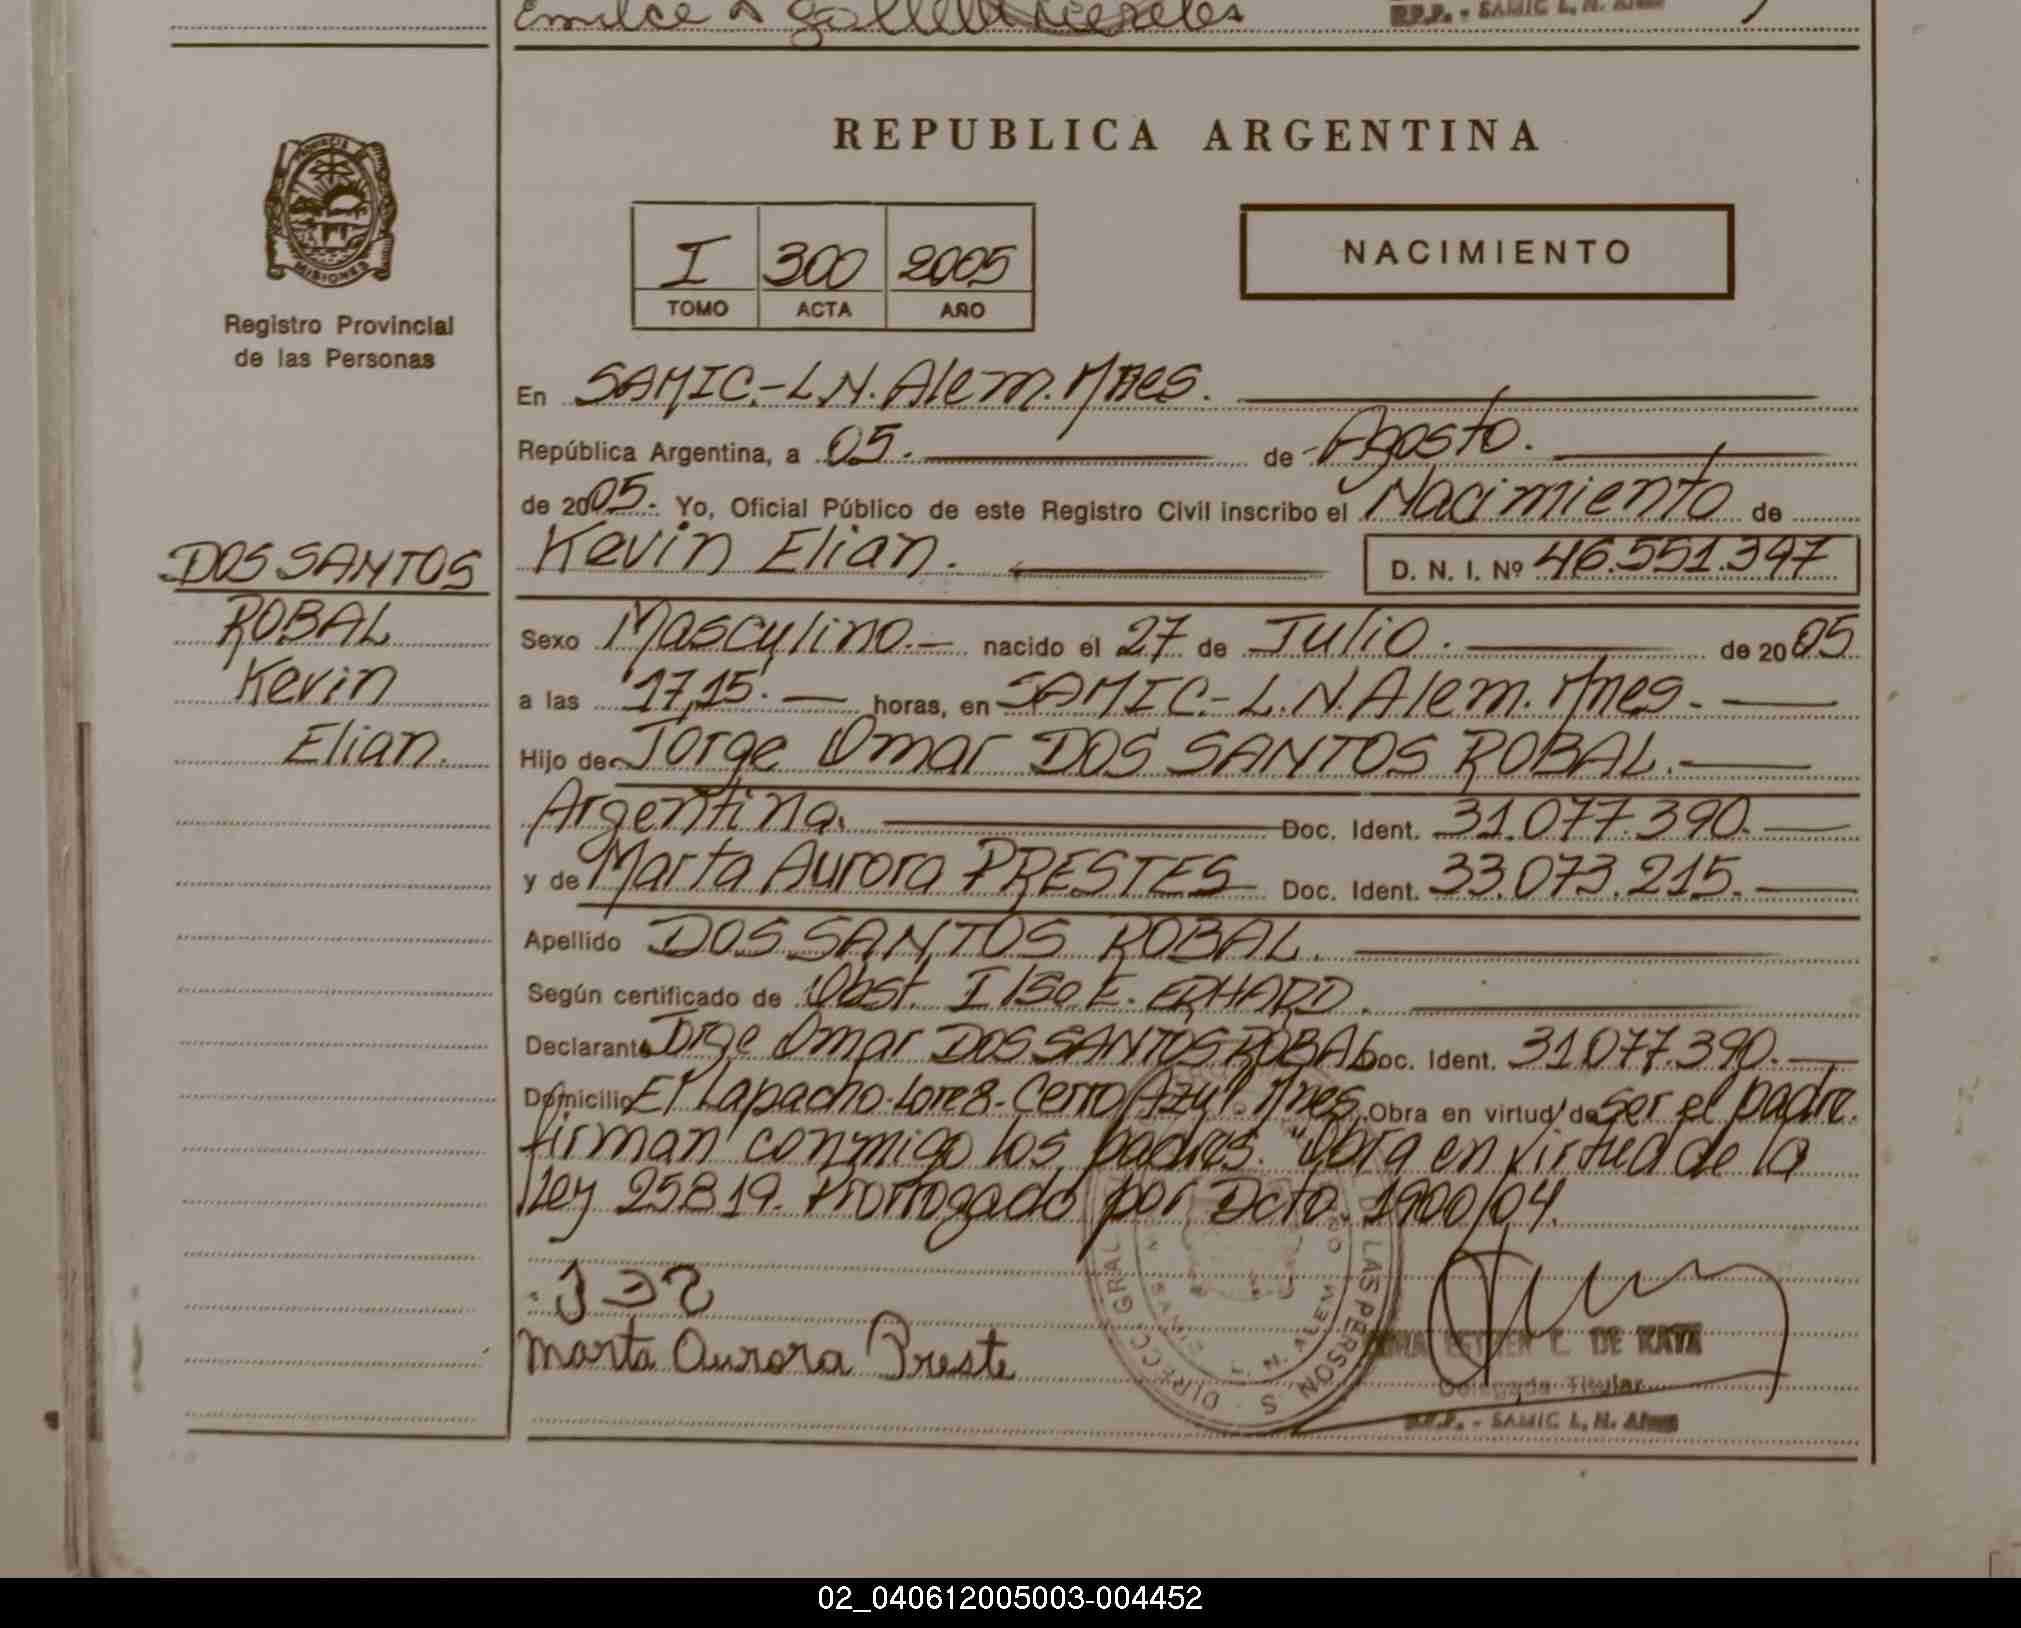 Emilce
R.P.P. - SAMIC L. N. Alem
REPUBLICA ARGENTINA
PROVINCIA DE
MISIONES
Registro Provincial
de las Personas
I 300 2005
TOMO ACTA AÑO
NACIMIENTO
En SAMIC.-L.N. Alem. Mnes.
República Argentina, a 05. de Agosto.
de 2005. Yo, Oficial Público de este Registro Civil inscribo el Nacimiento de
Kevin Elian. D. N. I. Nº 46.551.397
DOS SANTOS
ROBAL
Kevin
Elian.
Sexo Masculino.- nacido el 27 de Julio. de 2005
a las 17,15. horas, en SAMIC.-L.N. Alem. Mnes.
Hijo de Jorge Omar DOS SANTOS ROBAL.
Argentina. Doc. Ident. 31.077.390.
y de Marta Aurora PRESTES Doc. Ident. 33.073.215.
Apellido DOS SANTOS ROBAL.
Según certificado de Obst. Ilse E. ERHARD.
Declarante Jorge Omar DOS SANTOS ROBAL Doc. Ident. 31.077.390.
Domicilio El Lapacho-Lote 8-Cerro Azul Mnes. Obra en virtud de ser el padre.
firman conmigo los padres. "Obra en virtud de la
Ley 25819. Prorrogado por Dcto. 1900/04.
Marta Aurora Preste
DIRECC. GRAL. LAS PERSONAS
L. N. ALEM
ESTHER C. DE KATZ
Delegada Titular
R.P.P. - SAMIC L. N. Alem
02_040612005003-004452